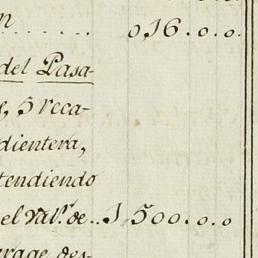 n ...... 0,16.0.0.
del Pasa-
s, 5 reca-
dientera,
tendiendo
el val.r de.. 1,500.0.0
arage des-